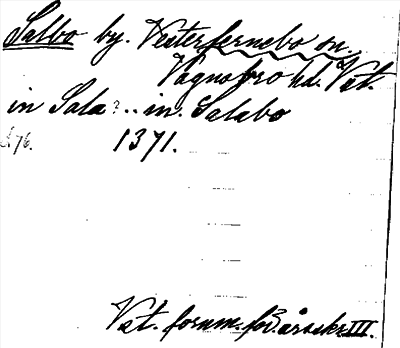 Salbo by. Vesterfernebo sn.
Vagnsbro hd. Vst.
in Sala?.. in Salabo
76. 1371.
Vst. fornm. för. årsskr. III.